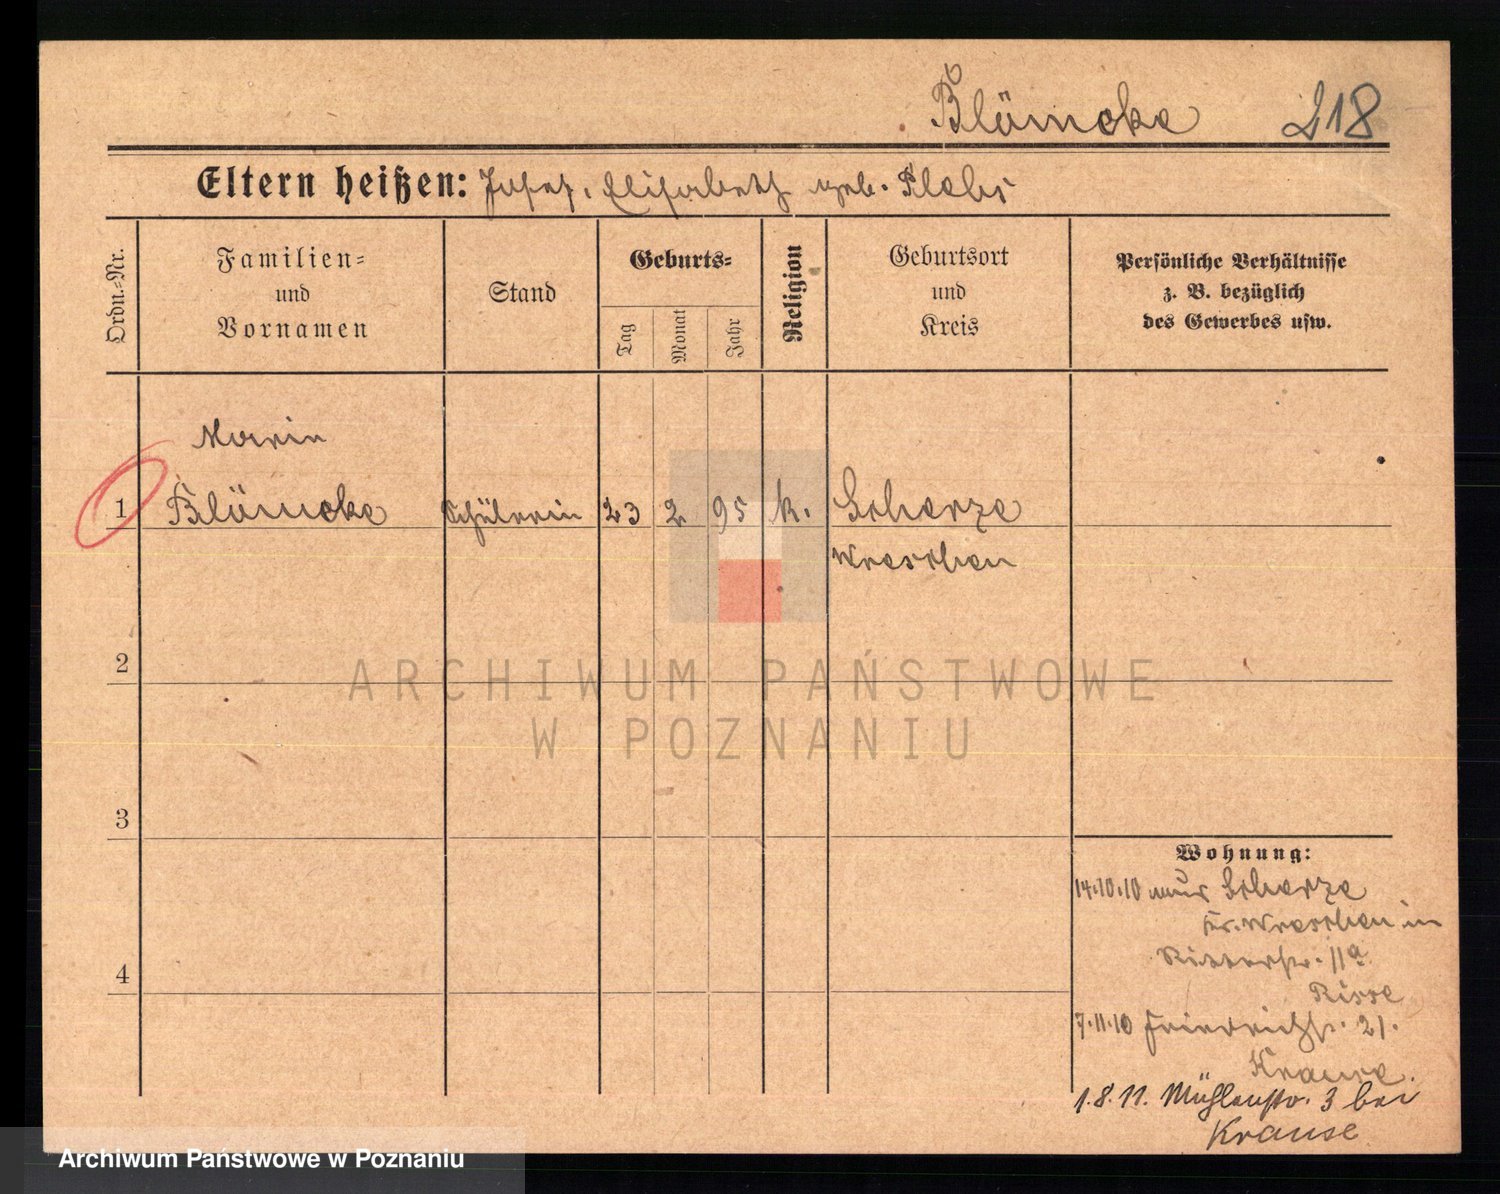 Blümcke 218
Eltern heißen: Josef, Elisabeth geb. Klebs
Ordn.-Nr.
Familien-
und
Vornamen
Stand
Geburts-
Tag
Monat
Jahr
Religion
Geburtsort
und
Kreis
Persönliche Verhältnisse
z. B. bezüglich
des Gewerbes usw.
Maria
1 Blümcke Schülerin 23 2 95 k. Scherze
Wreschen
2
ARCHIWUM PAŃSTWOWE
W POZNANIU
3
Wohnung:
14.10.10 aus Scherze
Kr. Wreschen in
4
Ritterstr. 11a
Risse
7.11.10 Friedrichstr. 21.
Krause.
1.8.11. Mühlenstr. 3 bei
Krause
Archiwum Państwowe w Poznaniu